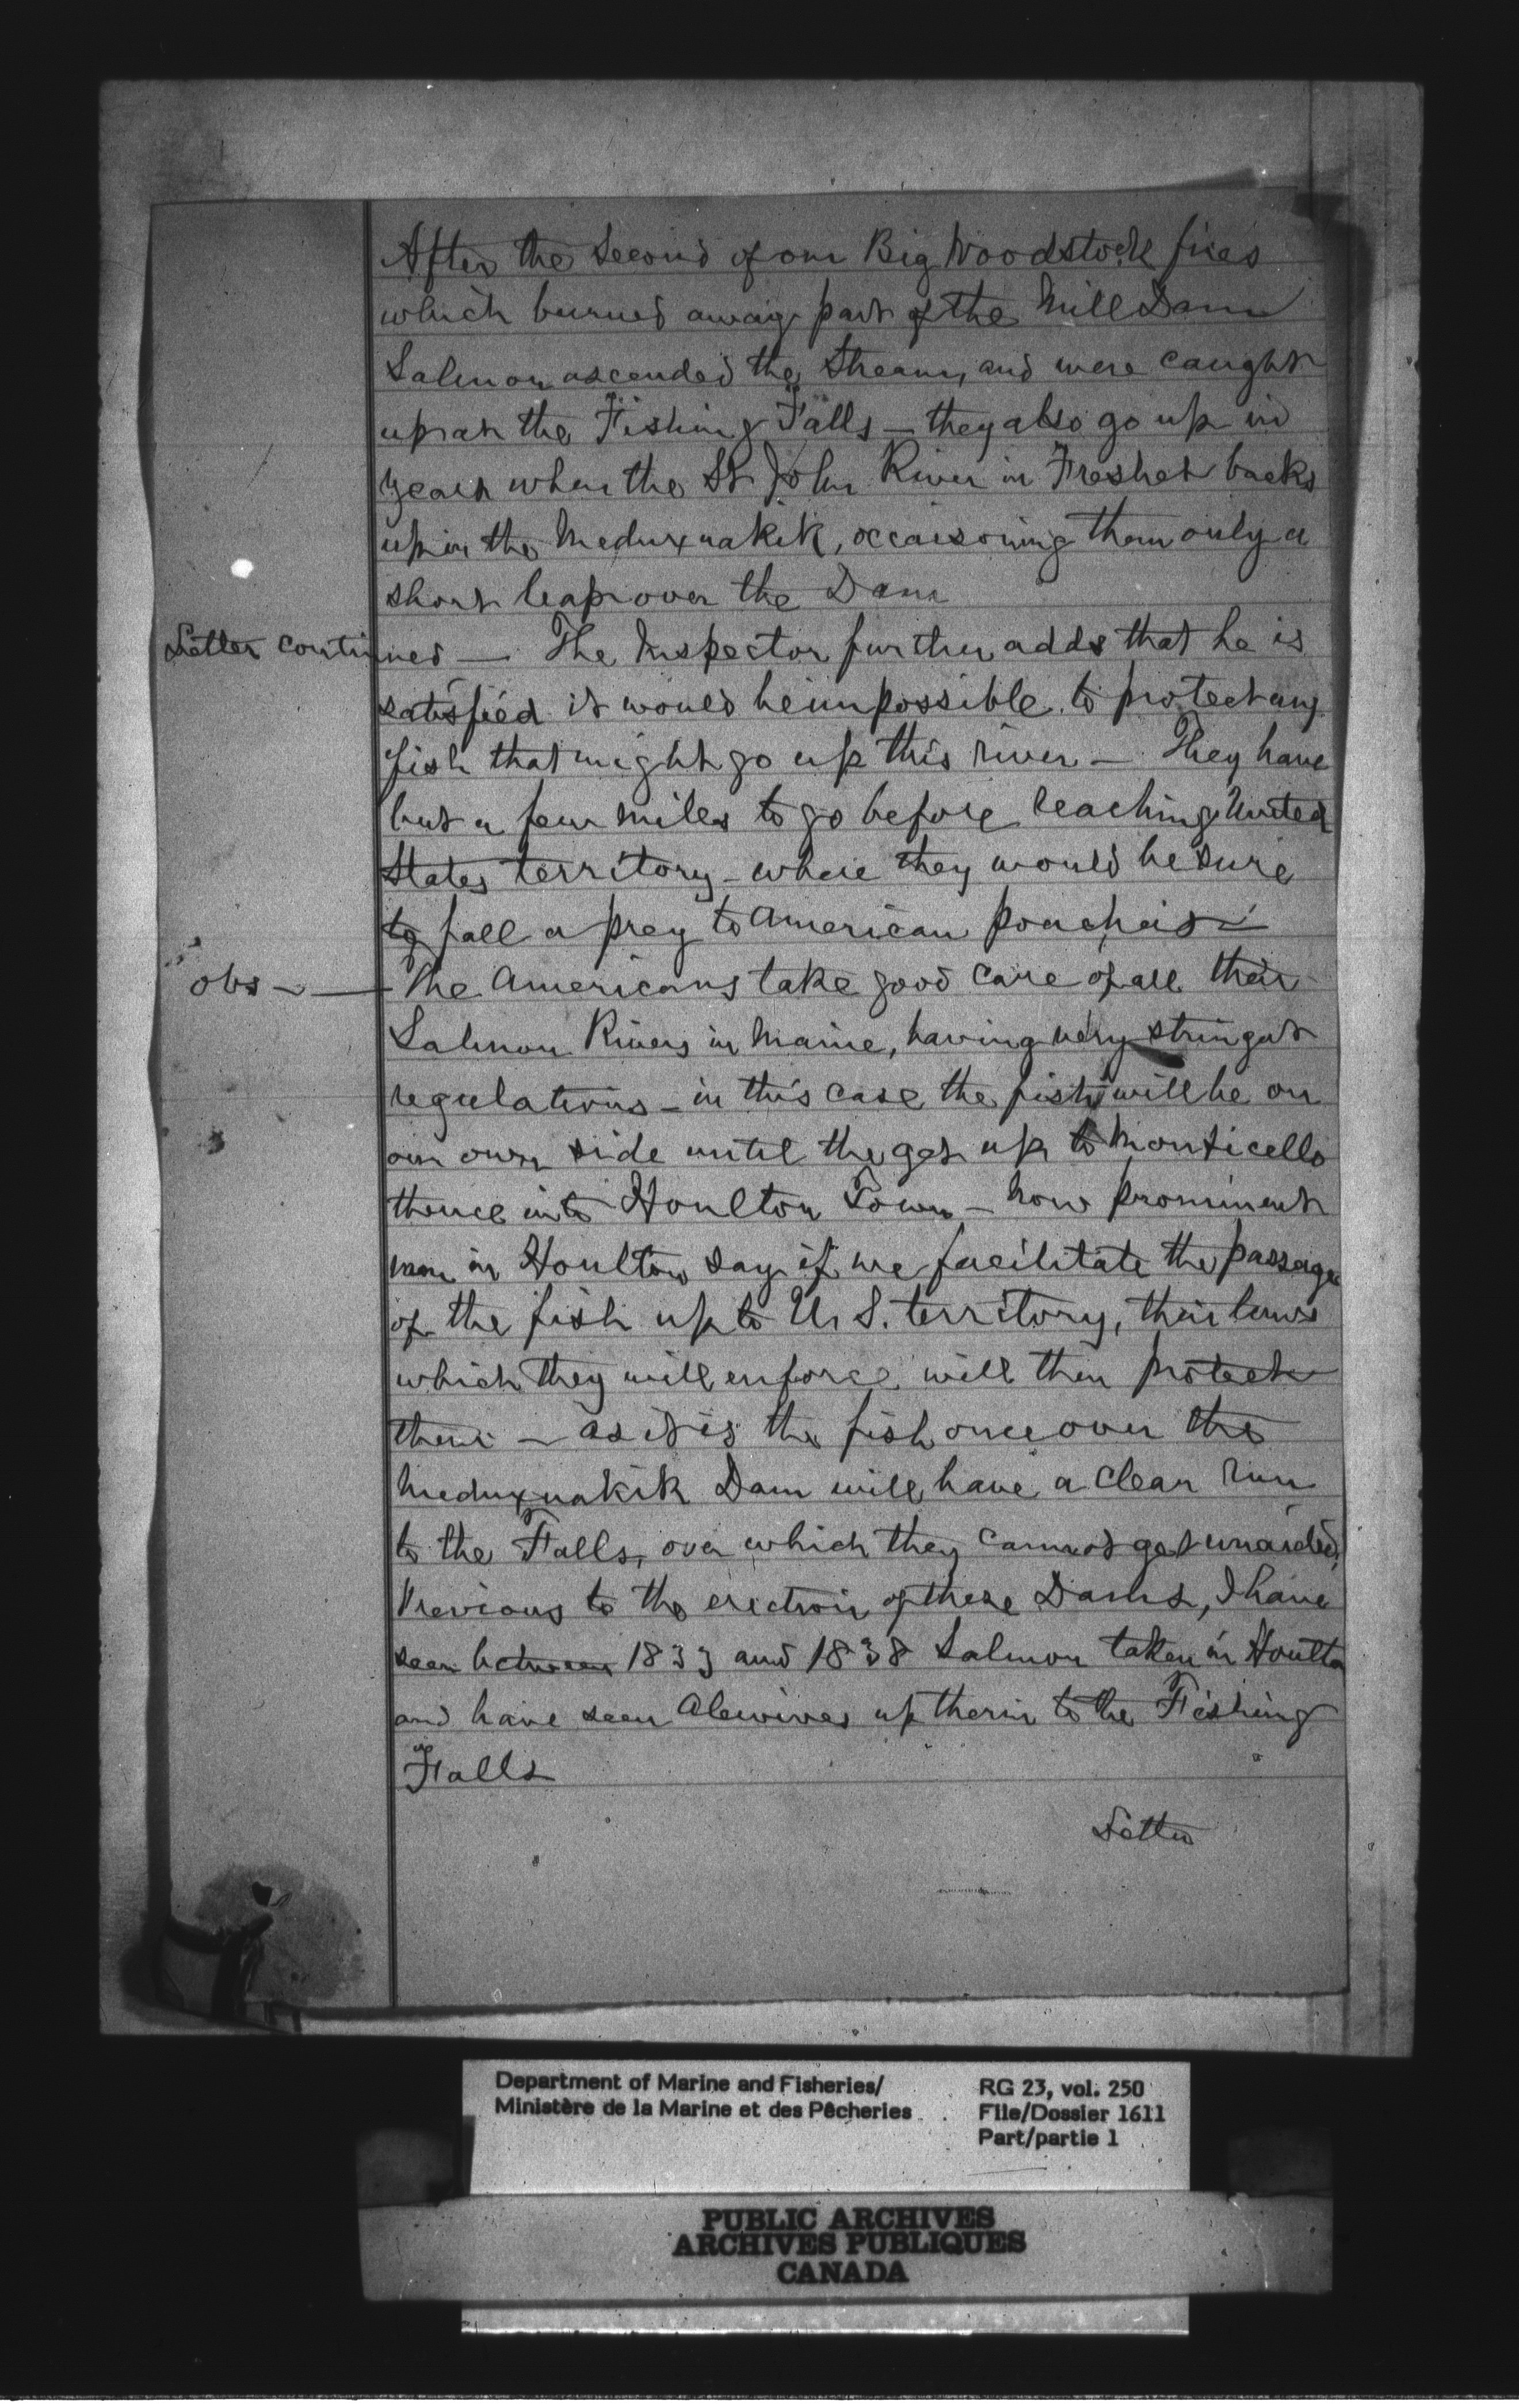 After the Second of our Big Woodstock fires
which burned away part of the Mill Dam
Salmon ascended the Stream, and were caught
up at the Fishing Falls — they also go up in
years when the St John River in Freshet backs
up in the Meduxnakik, occaisoning them only a
short leap over the Dam
Letter continued — The Inspector further adds that he is
satisfied it would be impossible to protect any
fish that might go up this river — They have
but a few miles to go before reaching United
States territory — where they would be sure
to fall a prey to American poachers —
obs — The Americans take good care of all their
Salmon Rivers in Maine, having very stringent
regulations — in this case the fish will be on
our own side until the get up to Monticello
thence into Houlton Town — now prominent
men in Houlton say if we facilitate the passage
of the fish up to U.S. territory, their laws
which they will enforce will then protect
them — as it is the fish once over the
Meduxnakik Dam will have a clear run
to the Falls, over which they cannot get unaided,
Previous to the erection of these Dams, I have
seen between 1833 and 1838 Salmon taken in Houlton
and have seen Alewives up therin to the Fishing
Falls
Letter
Department of Marine and Fisheries/
Ministère de la Marine et des Pêcheries
RG 23, vol. 250
File/Dossier 1611
Part/partie 1
PUBLIC ARCHIVES
ARCHIVES PUBLIQUES
CANADA